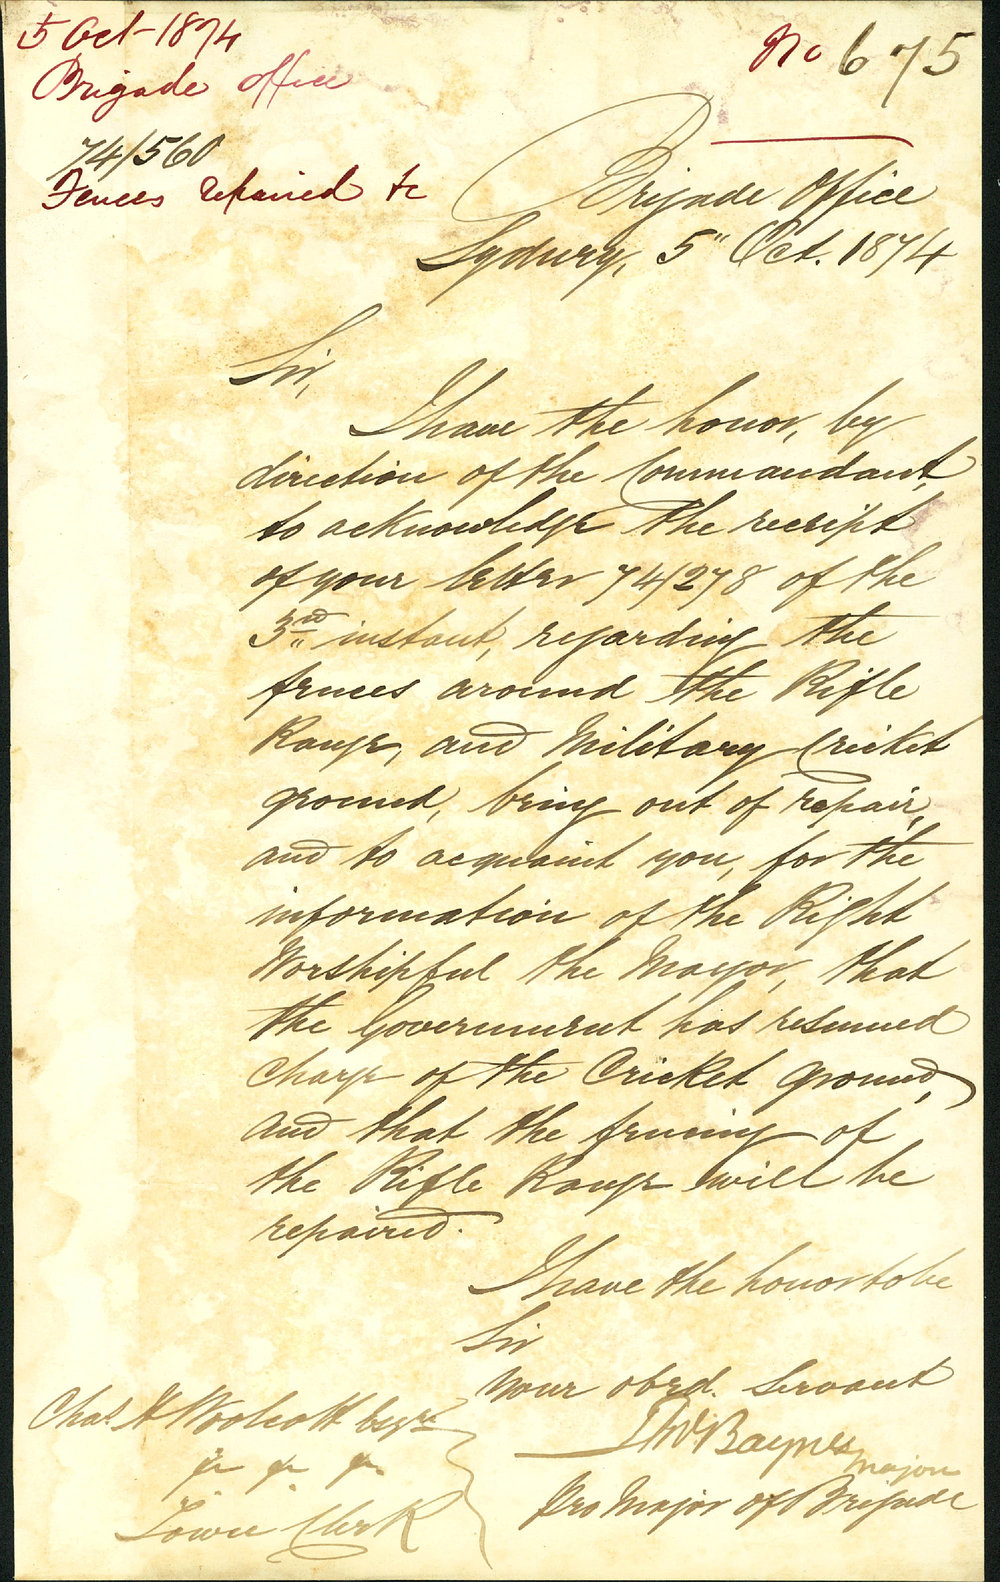 5 Oct-1874
Brigade Office
74/560
Fences repaired &c
No 675
Brigade Office
Sydney, 5" Oct. 1874
Sir,
I have the honor, by
direction of the Commandant,
to acknowledge the receipt
of your letter 74/278 of the
3rd instant, regarding the
fences around the Rifle
Range, and Military Cricket
ground, being out of repair,
and to acquaint you, for the
information of the Right
Worshipful the Mayor, that
the Government has resumed
charge of the Cricket ground,
and that the fencing of
the Rifle Range will be
repaired.
I have the honor to be
Sir
Your obed. Servant
Baynes
Major
Pro Major of Brigade
Chas. H Woolcott Esqre
Town Clerk